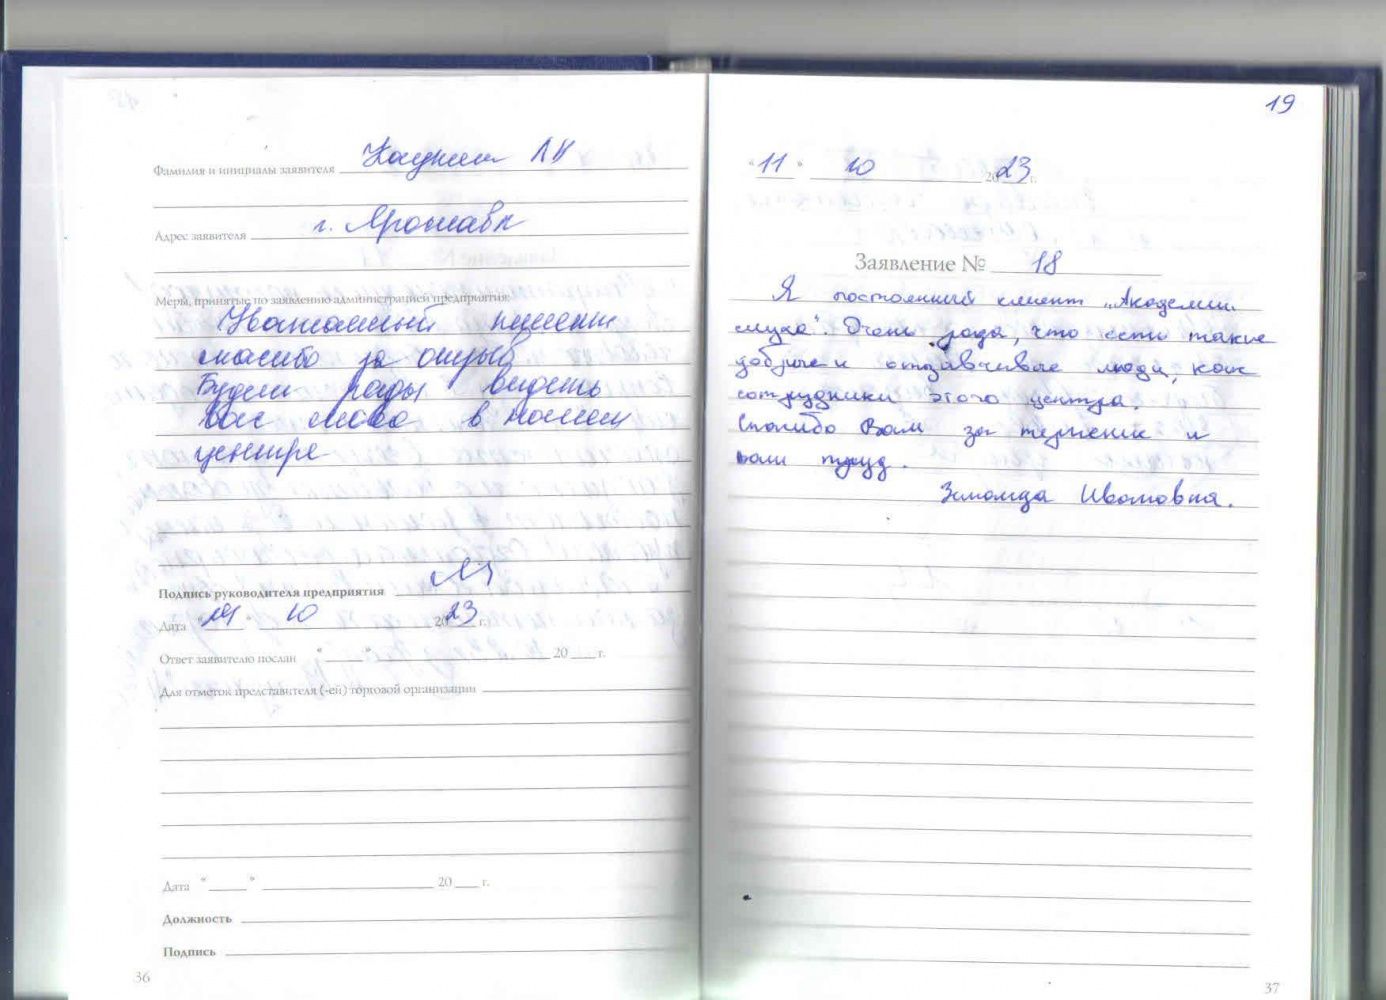 Фамилия и инициалы заявителя
Адрес заявителя г. Ярославль
Меры, принятые по заявлению администрацией предприятия:
Уважаемый
спасибо за отзыв
Будем рады видеть
Вас снова в нашем
центре
Подпись руководителя предприятия
Дата " " 10 2023 г.
Ответ заявителю послан " " 20 г.
Для отметок представителя (-ей) торговой организации
Дата " " 20 г.
Должность
Подпись
36
19
"11" 10 2023 г.
Заявление № 18
Я постоянный клиент „Академии
слуха". Очень рада, что есть такие
добрые и отзывчивые люди, как
сотрудники этого центра.
Спасибо Вам за терпение и
ваш труд.
Ивановна.
37